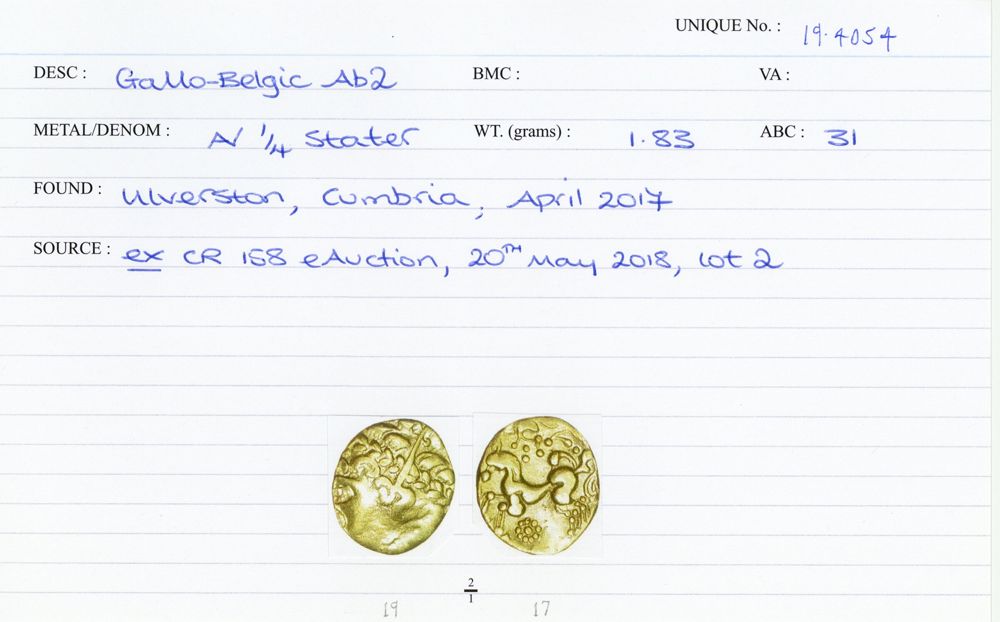 UNIQUE No. : 19.4054
DESC : Gallo-Belgic Ab2 BMC : VA :
METAL/DENOM : A/ 1/4 Stater WT. (grams) : 1.83 ABC : 31
FOUND : Ulverston, Cumbria, April 2017
SOURCE : ex CR 158 eAuction, 20TH May 2018, lot 2
2
1
19 17